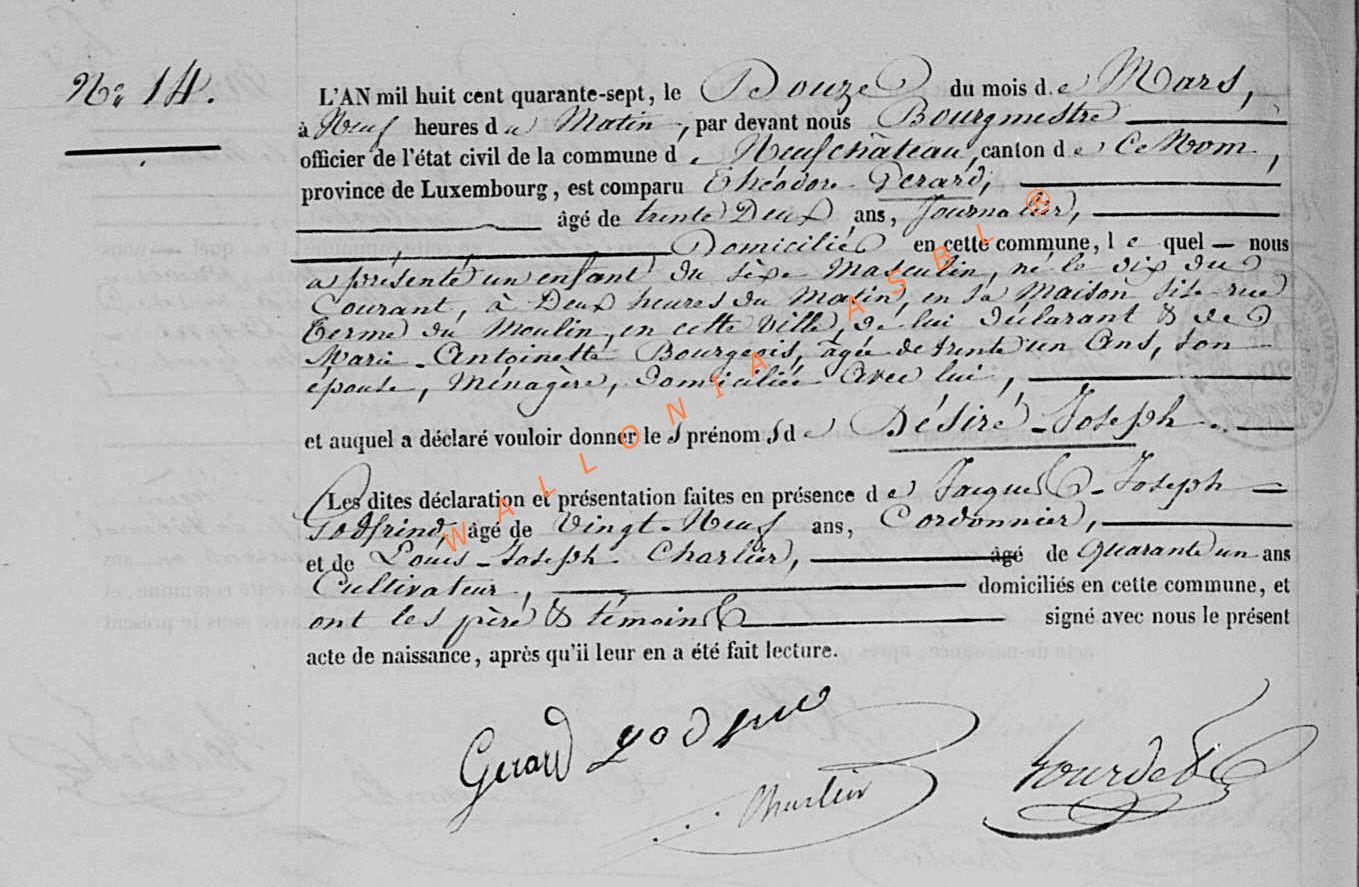 N.º 14.
L'AN mil huit cent quarante-sept, le Douze du mois de Mars,
à Neuf heures du Matin, par devant nous Bourgmestre
officier de l'état civil de la commune de Neufchâteau, canton de Ce Nom,
province de Luxembourg, est comparu Théodore Gerard,
âgé de trente Deux ans, Journalier,
Domicilié en cette commune, lequel nous
a présenté un enfant du sèxe Masculin, né le dix du
Courant, à Deux heures du Matin, en sa Maison site rue
terme du Moulin, en cette Ville, de lui déclarant & de
Marie-Antoinette Bourgeois, âgée de trente un Ans, son
épouse, Ménagère, Domiciliée avec lui,
et auquel a déclaré vouloir donner les prénoms de Désiré-Joseph.
Les dites déclaration et présentation faites en présence de Jacques-Joseph
Godfrind, âgé de Vingt-Neuf ans, Cordonnier,
et de Louis-Joseph Charlier, âgé de Quarante un ans
Cultivateur, domiciliés en cette commune, et
ont les père & témoins signé avec nous le présent
acte de naissance, après qu'il leur en a été fait lecture.
Gerard
Charlier
WALLONIA ASBL ©